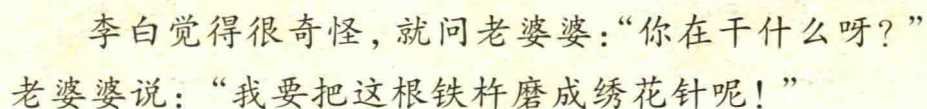 李白觉得很奇怪，就问老婆婆：“你在干什么呀？”
老婆婆说：“我要把这根铁杵磨成绣花针呢！”